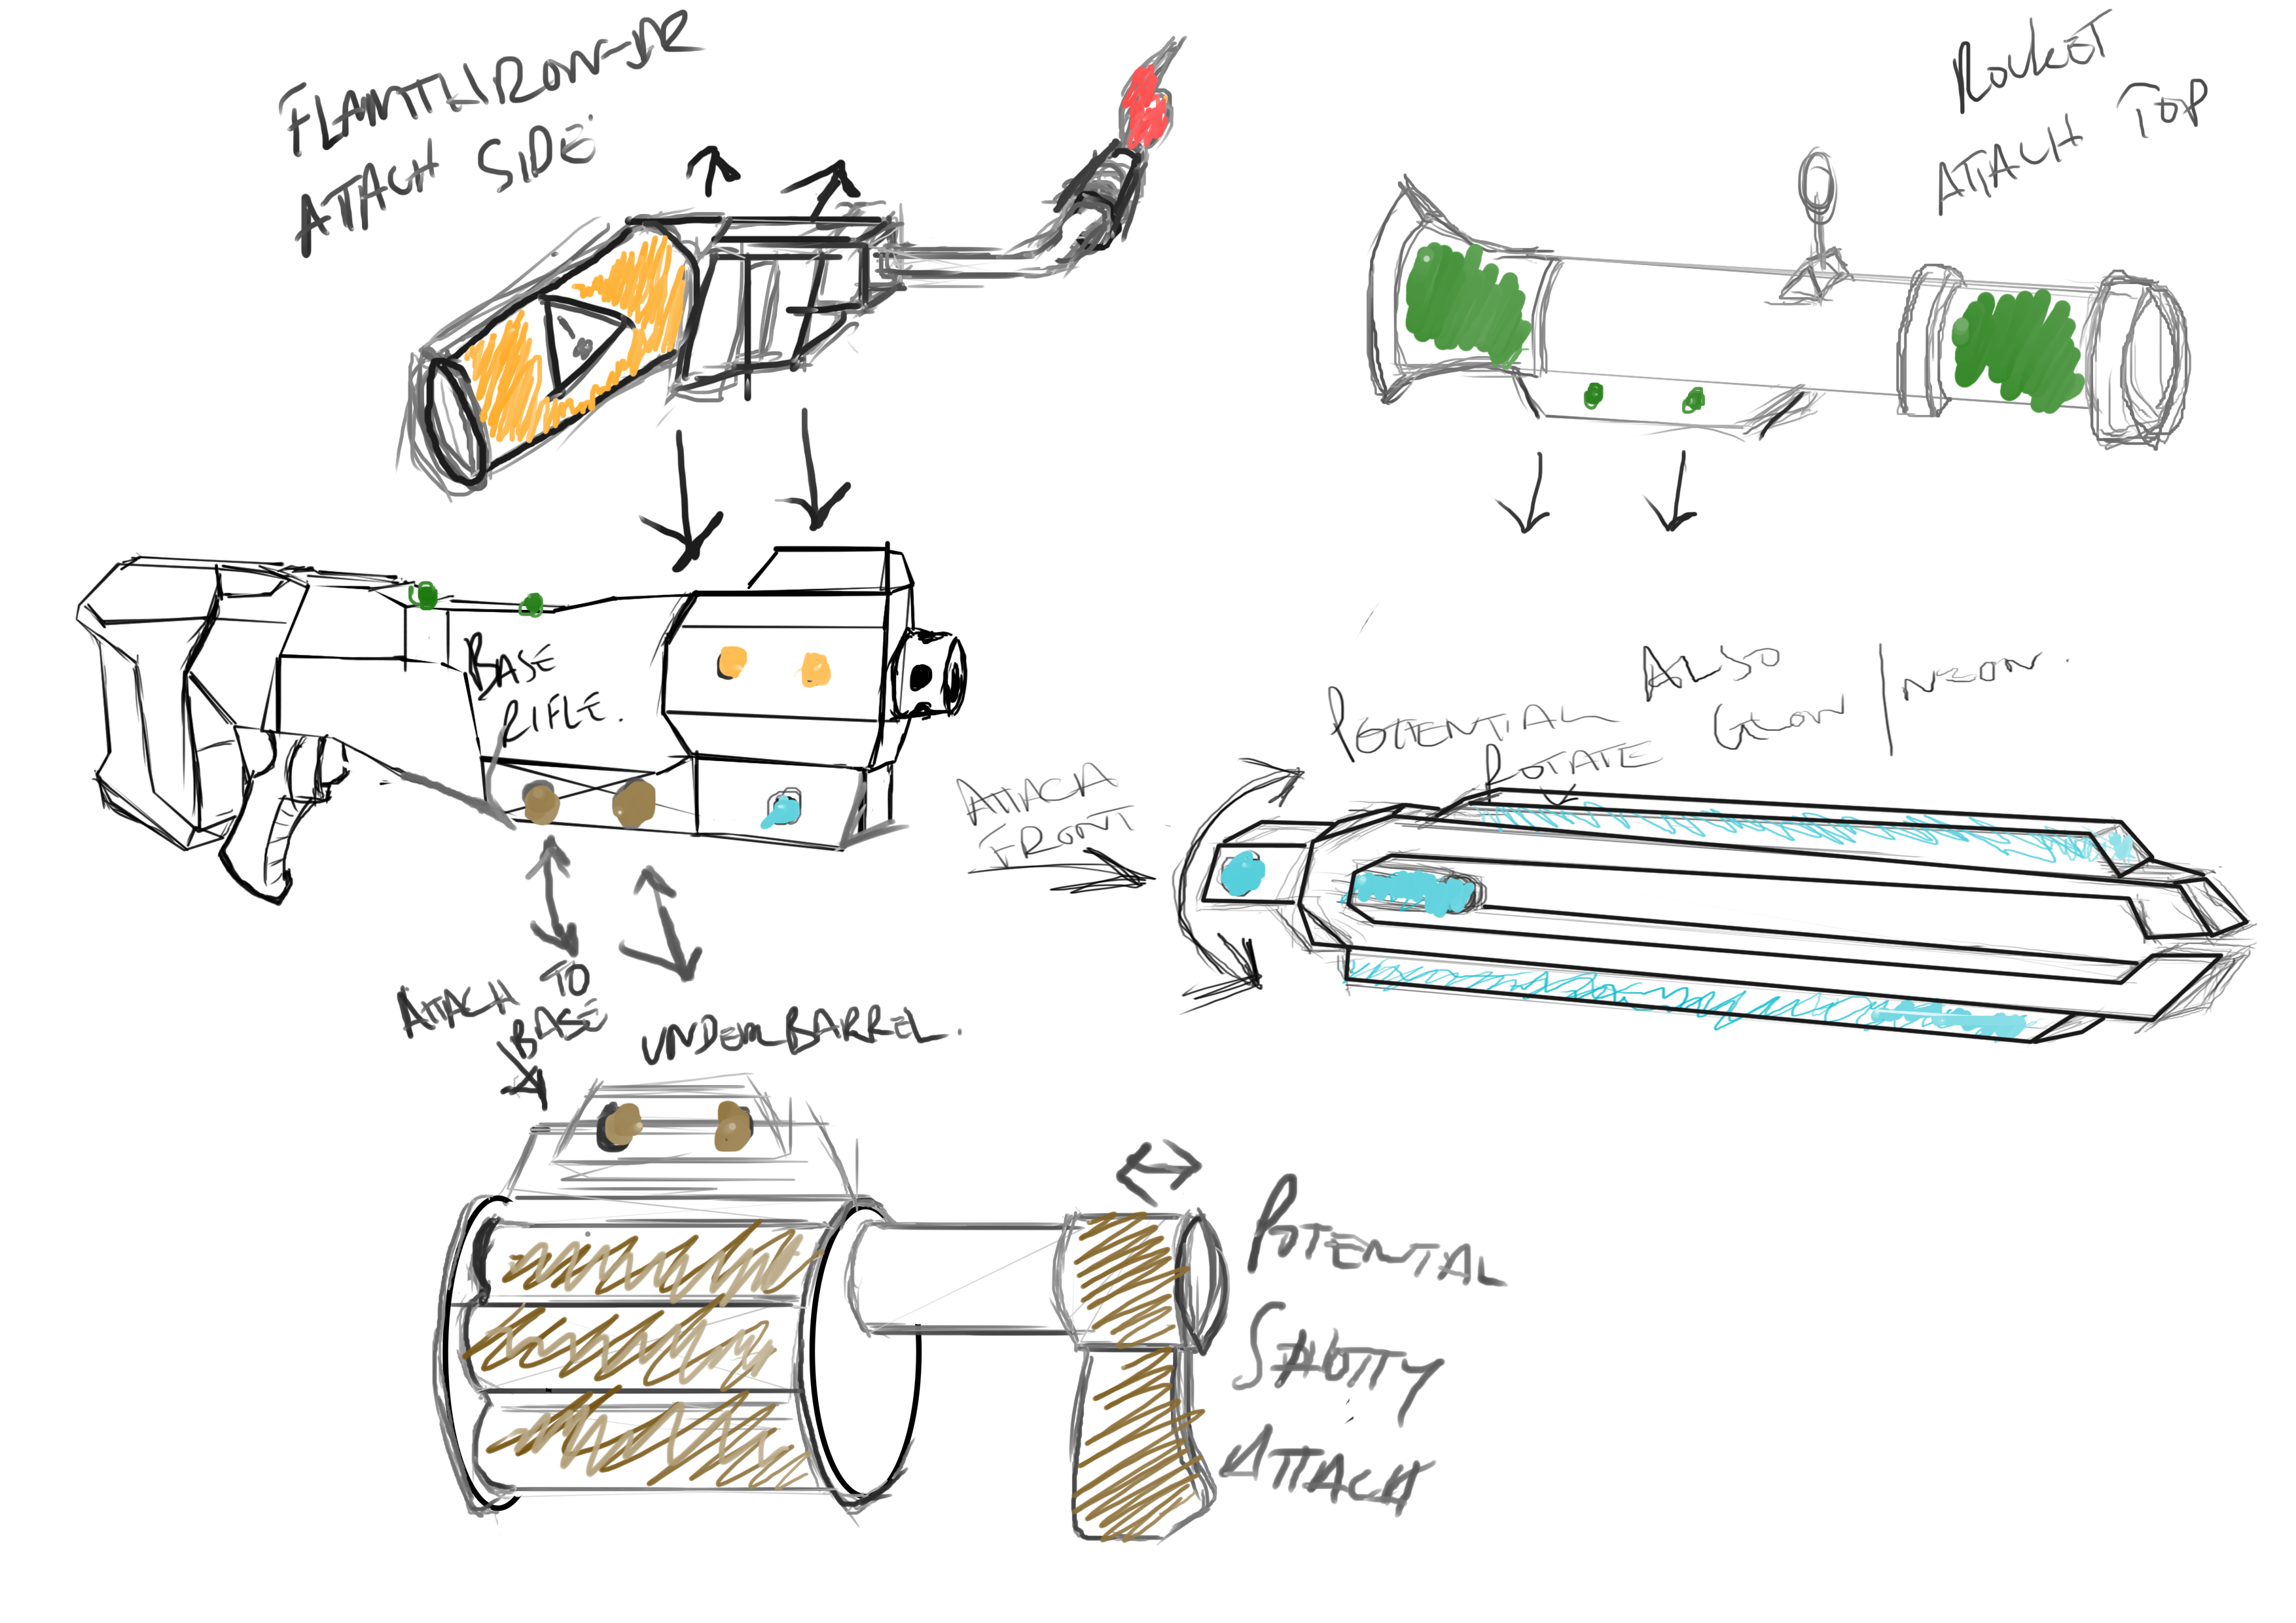 FLAMTHROW-ER
ATTACH SIDE
ROCKET
ATTACH TOP
BASE
RIFLE.
ATTACH
FRONT.
POTENTIAL
ROTATE
ALSO
GLOW / NEON.
ATTACH TO
BASE
UNDERBARREL.
POTENTIAL
SHOTTY
ATTACH